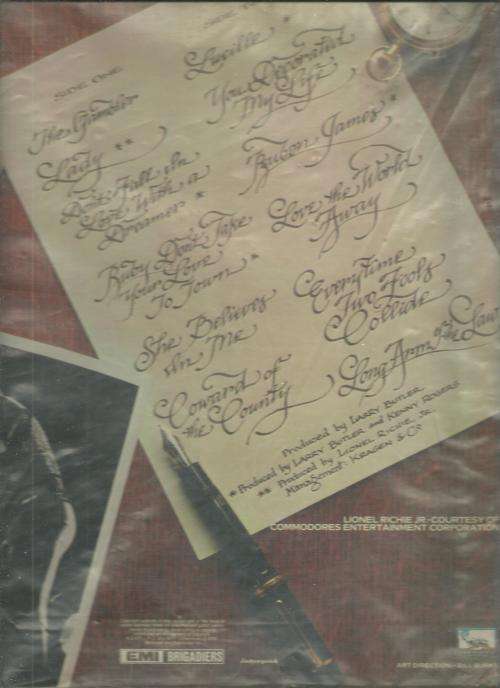 SIDE ONE
The Gambler
Lady **
Don't Fall In
Love With a
Dreamer *
Ruby Don't Take
Your Love
To Town *
She Believes
In Me
Coward of
the County
SIDE
Lucille *
You Decorated
My Life
Ruben James *
Love the World
Away
Everytime
Two Fools
Collide
Long Arm of the Law
Produced by LARRY BUTLER
* Produced by LARRY BUTLER and KENNY ROGERS
** Produced by LIONEL RICHIE, JR.
Management: KRAGEN & CO
LIONEL RICHIE JR.-COURTESY OF
COMMODORES ENTERTAINMENT CORPORATION
EMI BRIGADIERS
ART DIRECTION-BILL BURKS